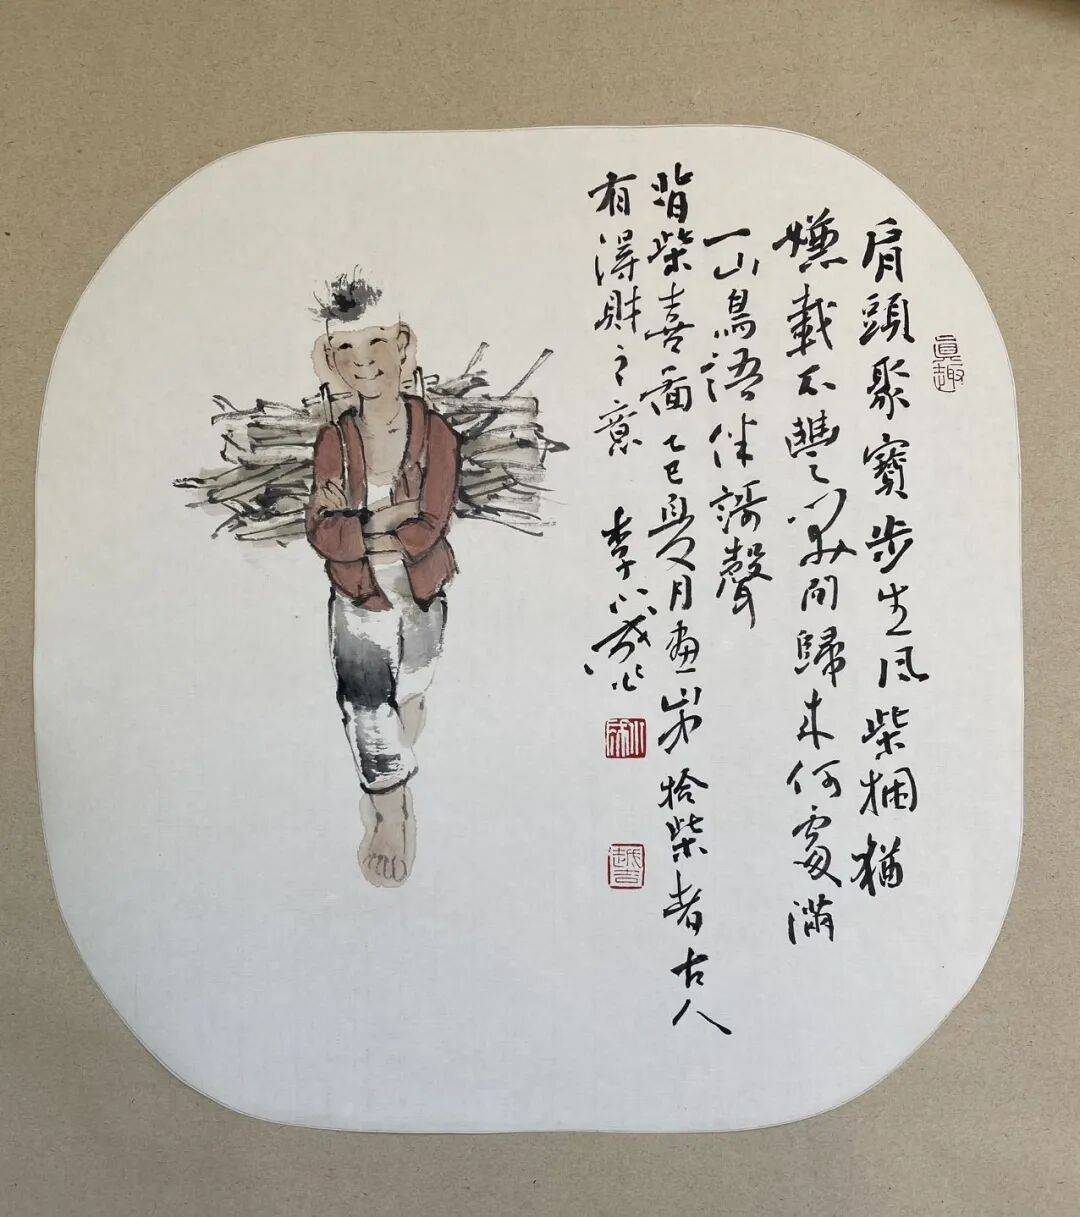 眞趣
肩頭聚寶步生风柴捆猶
嫌載不豐若問歸来何處滿
一山鳥語伴謌聲
背柴喜乙巳夏月畫拾柴者古人
有得財之意 李小成
小成